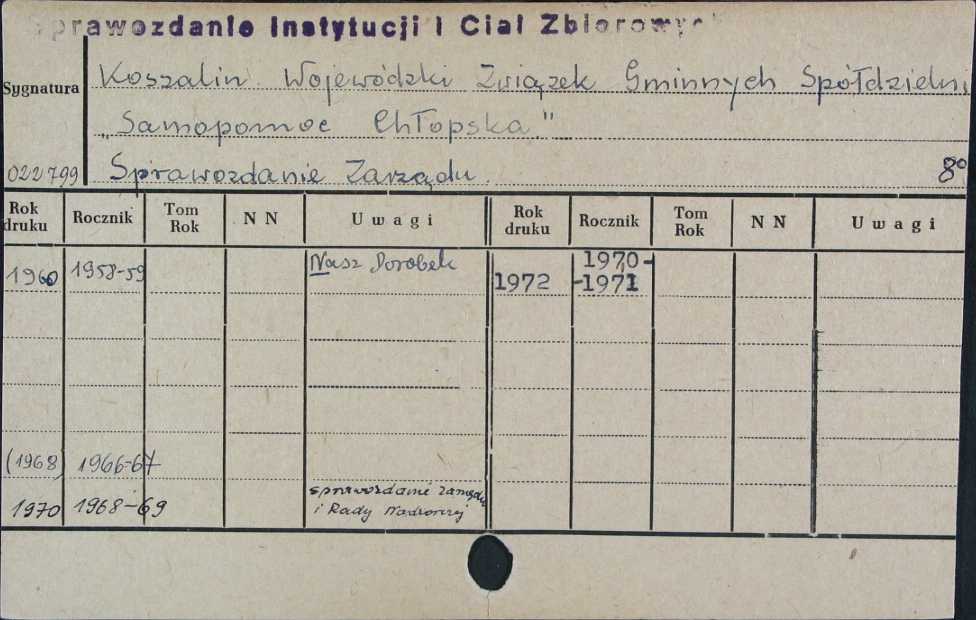 Sprawozdanie Instytucji i Ciał Zbiorowych
Koszalin. Wojewódzki Związek Gminnych Spółdzielni
Sygnatura
„Samopomoc Chłopska"
022799 Sprawozdanie Zarządu. 8°
Rok druku Rocznik Tom Rok N N Uwagi Rok druku Rocznik Tom Rok N N Uwagi
1960 1958-59 Nasz Dorobek 1970-
1972 -1971
(1968) 1966-67
sprawozdanie zarządu
1970 1968-69 i Rady Nadzorczej